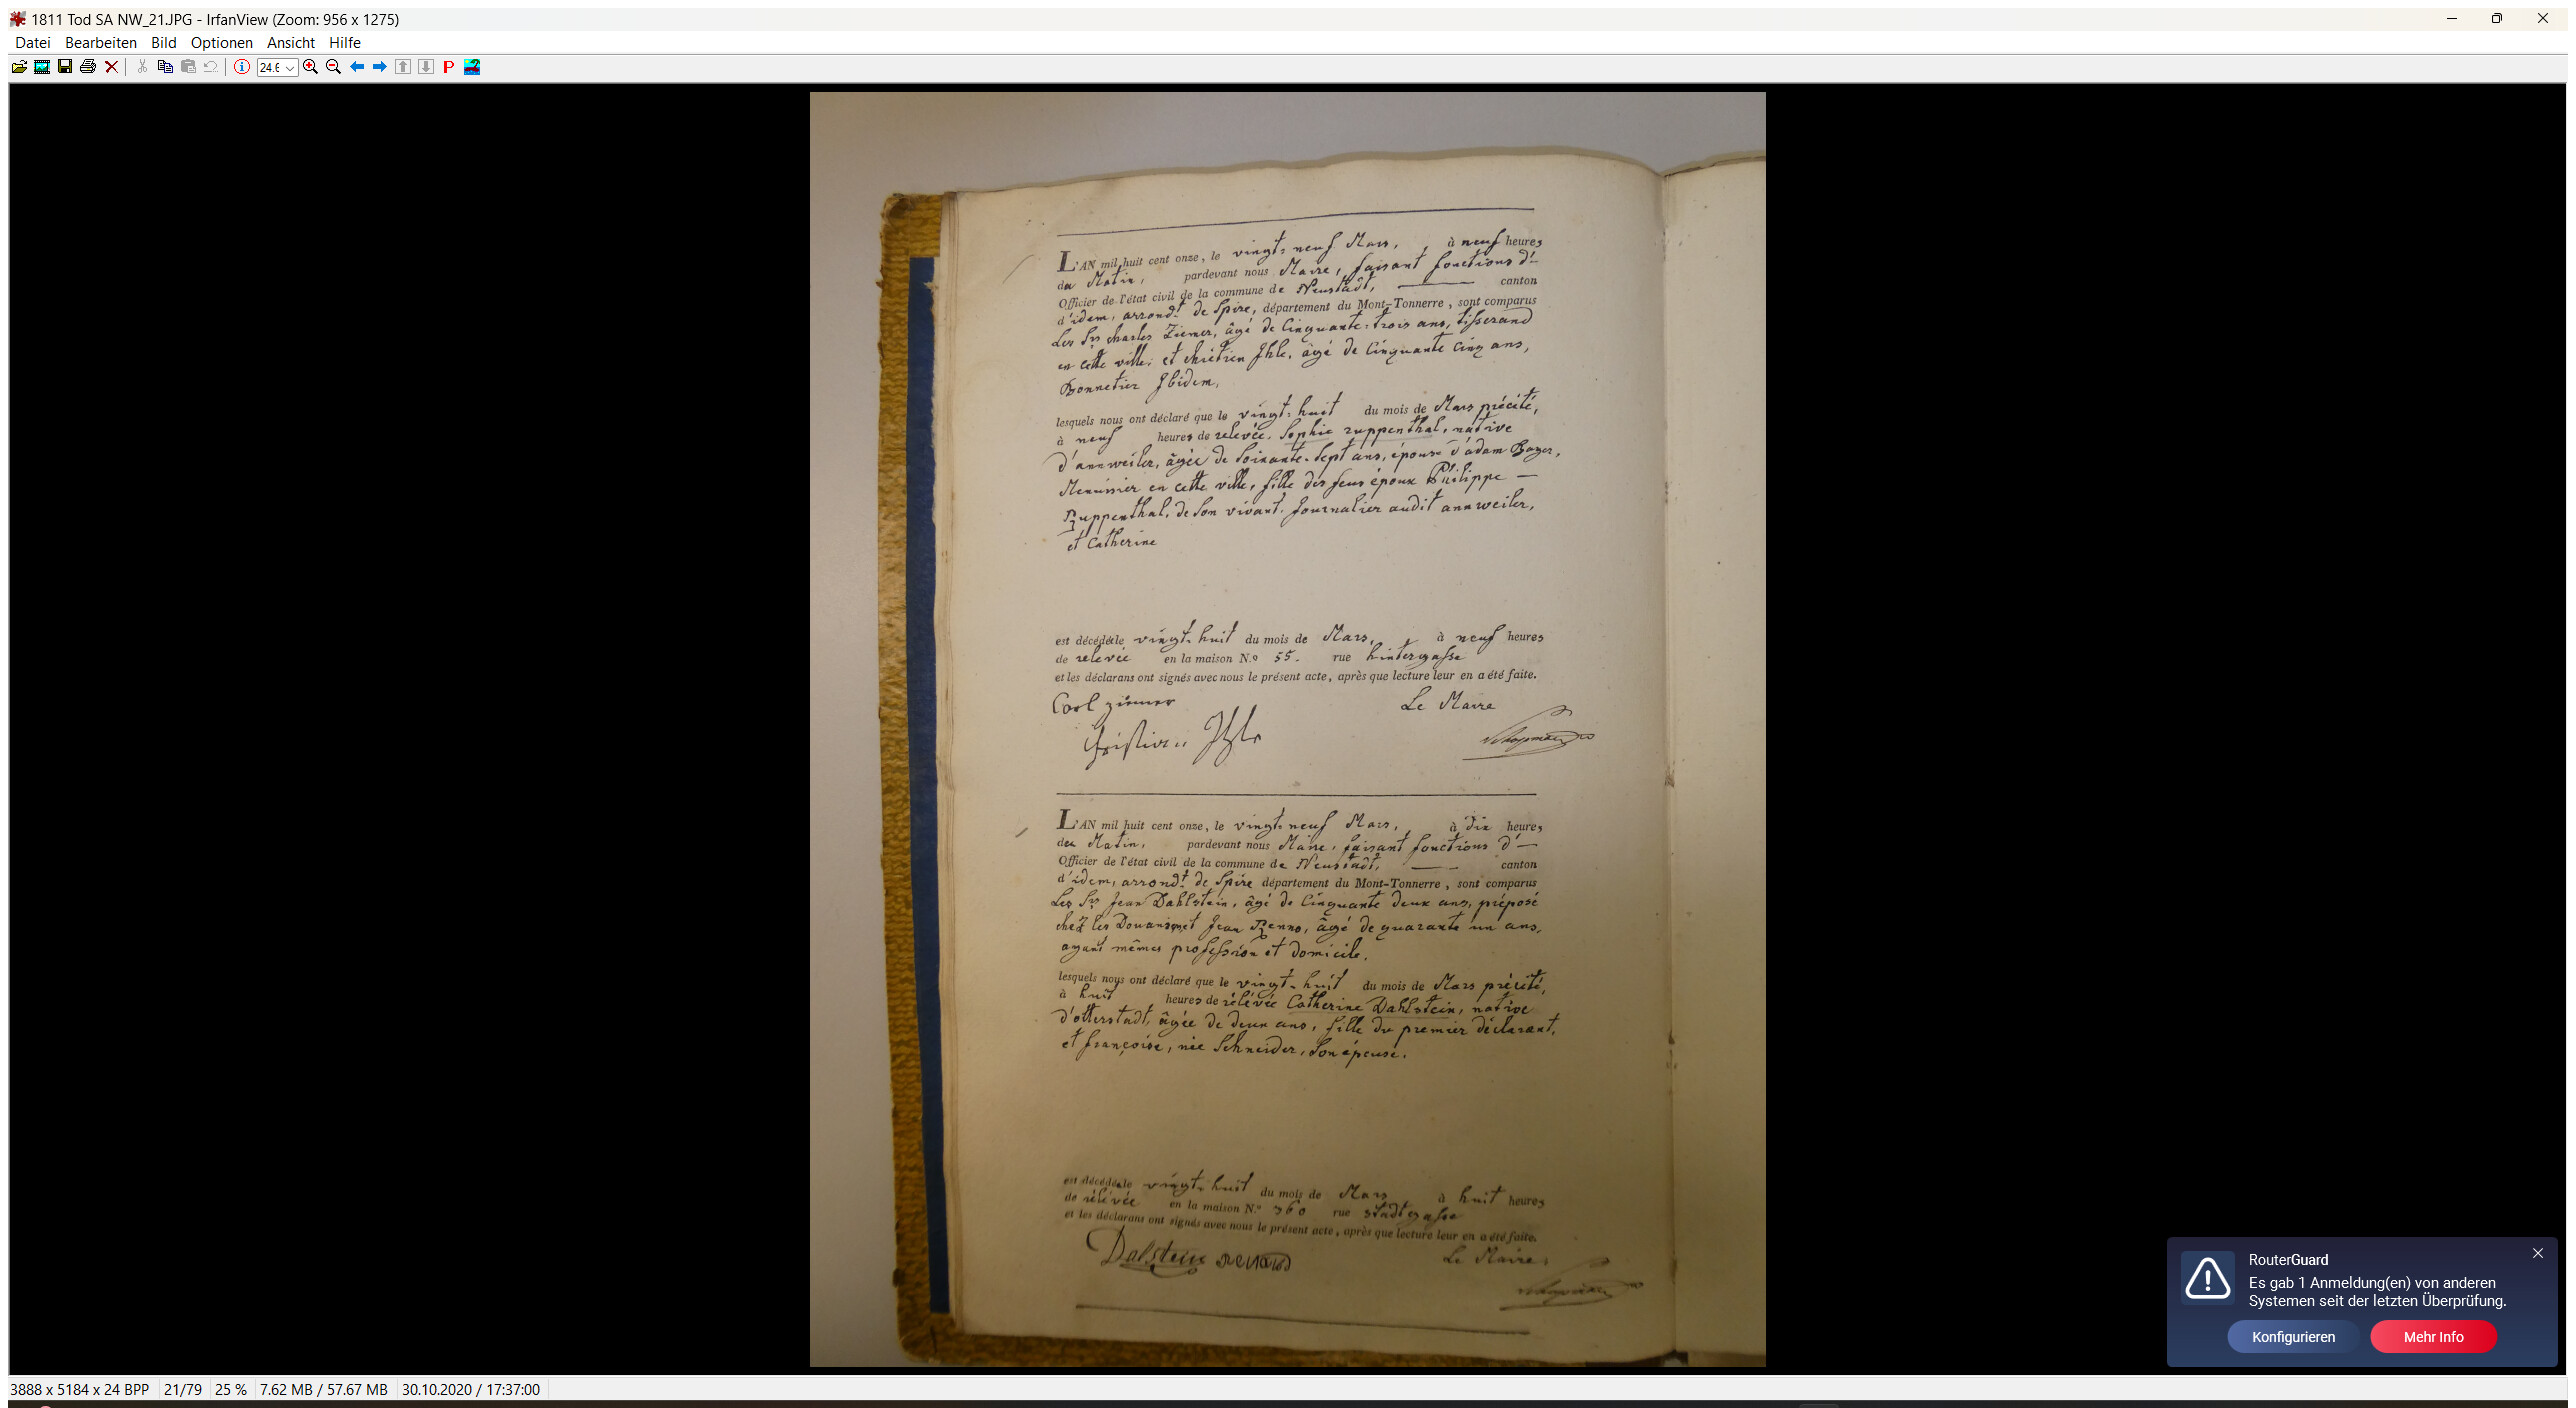 1811 Tod SA NW_21.JPG - IrfanView (Zoom: 956 x 1275)
Datei Bearbeiten Bild Optionen Ansicht Hilfe
24.6
L'AN mil huit cent onze, le vingt-neuf Mars, à neuf heures
du Matin, pardevant nous Maire, faisant fonctions d'—
Officier de l'état civil de la commune de Neustadt, — canton
d'idem, arrondt. de Spire, département du Mont-Tonnerre, sont comparus
Les Srs Charles Ziemer, âgé de Cinquante-trois ans, tisserand
en cette ville; et chrétien Ihle, âgé de Cinquante cinq ans,
Bonnetier Ibidem,
lesquels nous ont déclaré que le vingt-huit du mois de Mars précité,
à neuf heures de relevée, Sophie ruppenthal, native
d'annweiler, âgée de Soixante-Sept ans, épouse d'adam Bayer,
Menuisier en cette ville, fille des feus époux Philippe —
Ruppenthal, de Son vivant, Journalier audit annweiler,
et Catherine
est décédé le vingt-huit du mois de Mars, à neuf heures
de relevée en la maison N.º 55. rue hintergasse
et les déclarans ont signés avec nous le présent acte, après que lecture leur en a été faite.
Carl zimmer Le Maire
Christian Ihle
L'AN mil huit cent onze, le vingt-neuf Mars, à dix heures
du Matin, pardevant nous Maire, faisant fonctions d'—
Officier de l'état civil de la commune de Neustadt, — canton
d'idem, arrondt. de Spire département du Mont-Tonnerre, sont comparus
Les Srs Jean Dahlstein, âgé de Cinquante deux ans, préposé
chez les Douanes, et Jean Renno, âgé de quarante un ans,
ayant mêmes profession et domicile,
lesquels nous ont déclaré que le vingt-huit du mois de Mars précité,
à huit heures de rélévée Catherine Dahlstein, native
d'otterstadt, âgée de deux ans, fille du premier déclarant,
et françoise, née Schneider, Son épouse.
est décédé le vingt-huit du mois de Mars à huit heures
de rélévée en la maison N.º 360 rue stadtgasse
et les déclarans ont signés avec nous le présent acte, après que lecture leur en a été faite.
Dalstein Le Maire,
RouterGuard
Es gab 1 Anmeldung(en) von anderen
Systemen seit der letzten Überprüfung.
Konfigurieren Mehr Info
3888 x 5184 x 24 BPP 21/79 25 % 7.62 MB / 57.67 MB 30.10.2020 / 17:37:00